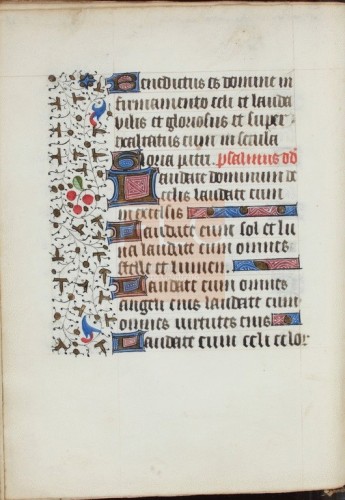 Benedictus es domine in
firmamento celi et lauda
bilis et gloriosus et super
exaltatus eum in secula
Gloria patri. psalmus dd
Laudate dominum de
celis laudate eum
in excelsis
Laudate eum sol et lu
na laudate eum omnes
stelle et lumen.
Laudate eum omnes
angeli eius laudate eum
omnes virtutes eius
Laudate eum celi celor